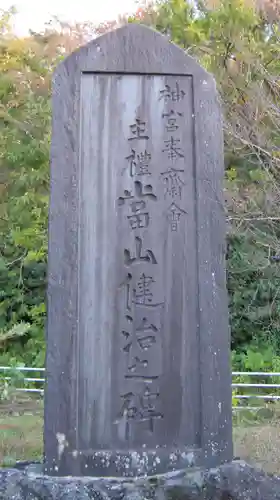 神宮奉齋會
主禮當山健治之碑